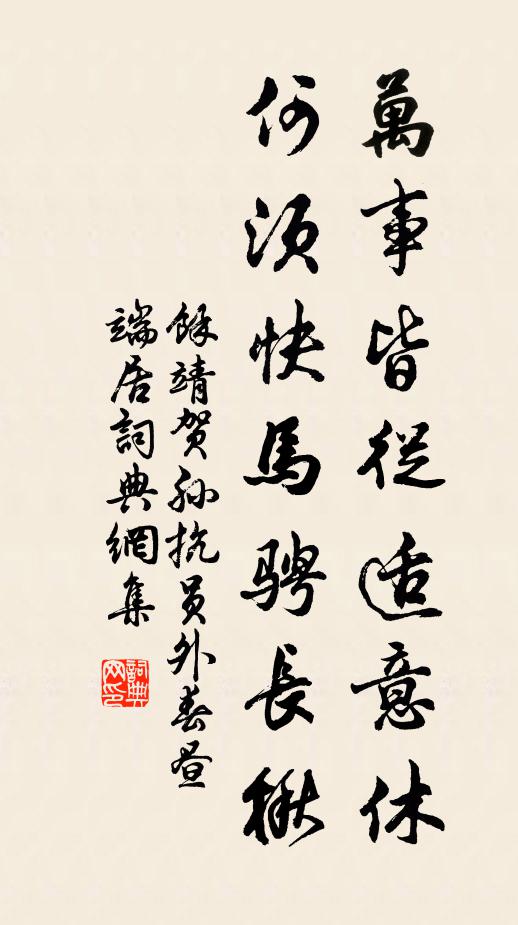 萬事皆從適意休
何須快馬騁長楸
餘靖賀孙抗員外春晝
端居詞典網集
詞典
网印